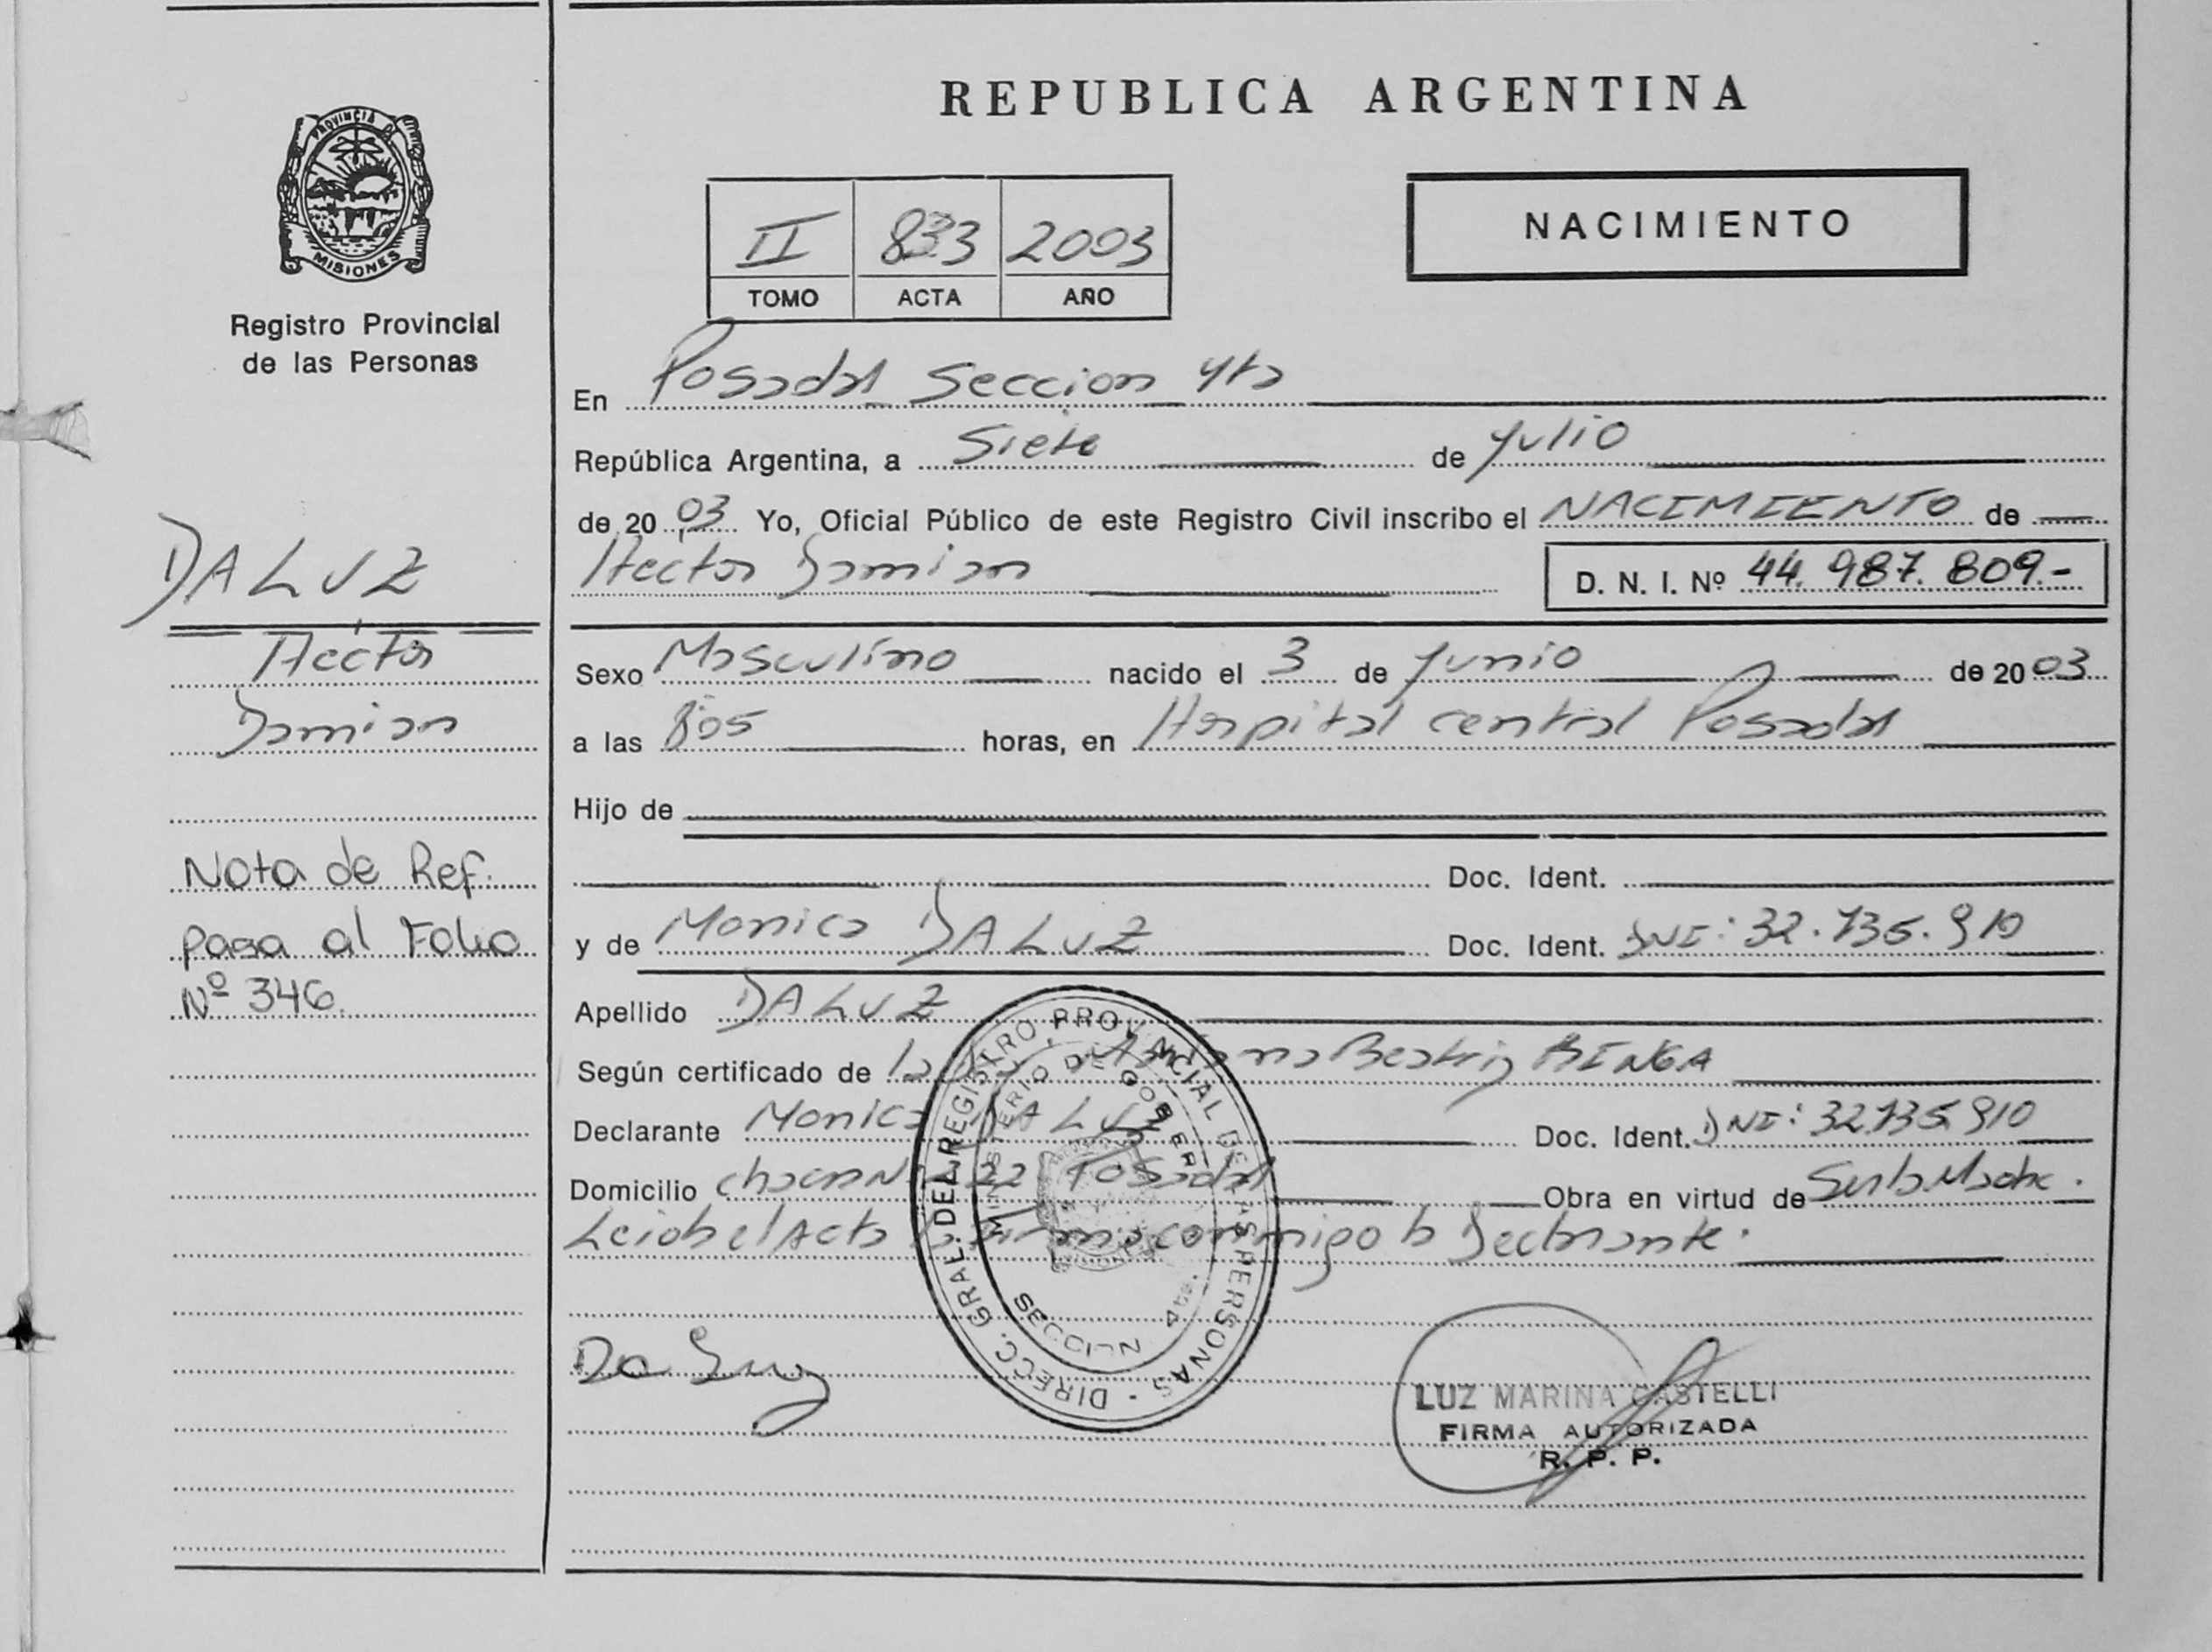 REPUBLICA ARGENTINA
PROVINCIA DE
MISIONES
Registro Provincial
de las Personas
II 833 2003
TOMO ACTA AÑO
NACIMIENTO
En Posadas Seccion 4ta
República Argentina, a Siete de Julio
de 2003 Yo, Oficial Público de este Registro Civil inscribo el NACIMIENTO de
Hector Damian D. N. I. Nº 44.987.809.-
DA LUZ
Hector
Damian
Nota de Ref.
pasa al Folio
Nº 346.
Sexo Masculino nacido el 3 de Junio de 2003
a las 8:05 horas, en Hospital central Posadas
Hijo de
Doc. Ident.
y de Monica DA LUZ Doc. Ident. DNI: 32.735.910
Apellido DA LUZ
Según certificado de la Beatriz
Declarante Monica DA LUZ Doc. Ident. DNI: 32.735.910
Domicilio Posadas Obra en virtud de Ser la Madre.
Leida el Acta firma conmigo la Declarante.
DIRECC. GRAL. DEL REGISTRO PROVINCIAL DE LAS PERSONAS
MINISTERIO DE GOBIER
SECCION 4ta.
Da Luz
LUZ MARINA CASTELLI
FIRMA AUTORIZADA
R. P. P.